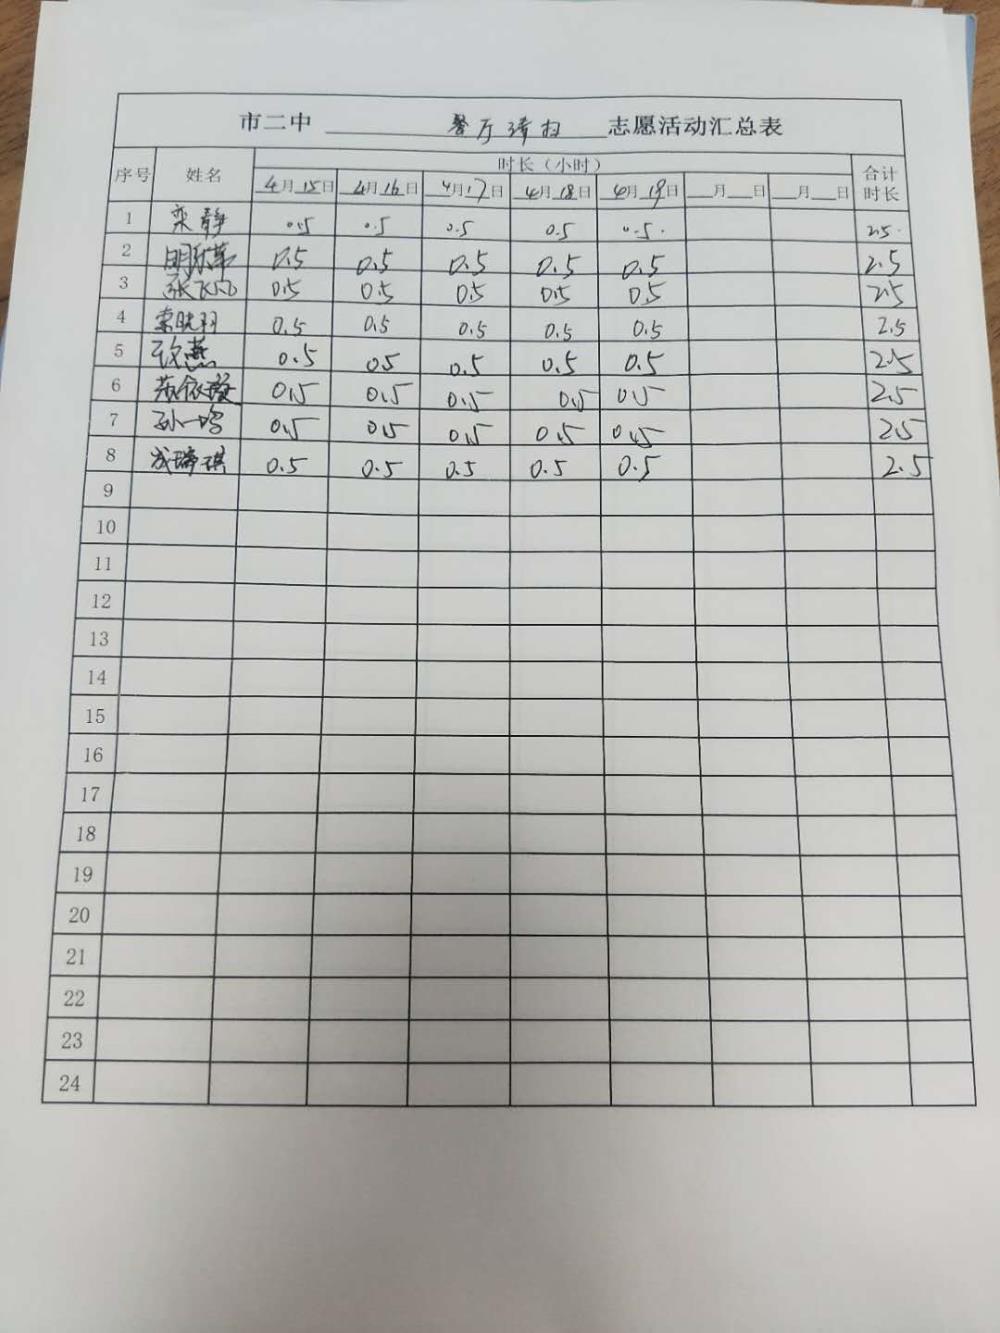 市二中 餐厅清扫 志愿活动汇总表
序号 姓名 时长（小时） 合计时长
4月15日 4月16日 4月17日 4月18日 4月19日 __月__日 __月__日
1 栾静 0.5 0.5 0.5 0.5 0.5. 2.5.
2 0.5 0.5 0.5 0.5 0.5 2.5
3 张飞凡 0.5 0.5 0.5 0.5 0.5 2.5
4 晓羽 0.5 0.5 0.5 0.5 0.5 2.5
5 燕 0.5 0.5 0.5 0.5 0.5 2.5
6 范依璇 0.5 0.5 0.5 0.5 0.5 2.5
7 孙一鸣 0.5 0.5 0.5 0.5 0.5 2.5
8 琪 0.5 0.5 0.5 0.5 0.5 2.5
9
10
11
12
13
14
15
16
17
18
19
20
21
22
23
24